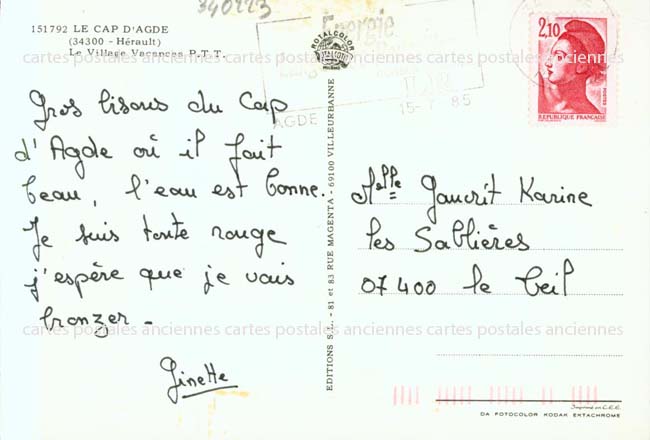 340223
151792 LE CAP D'AGDE
(34300 - Hérault)
Le Village Vacances P.T.T.
Gros bisous du Cap
d'Agde où il fait
beau, l'eau est bonne.
Je suis toute rouge
j'espère que je vais
bronzer -
Ginette
ROTALCOLOR
Energie
AGDE
15-7 85
2,10
POSTES
REPUBLIQUE FRANÇAISE
EDITIONS S.L. - 81 et 83 RUE MAGENTA - 69100 VILLEURBANNE
Melle Gaucrit Karine
les Sablières
07400 le Teil
cartes postales anciennes cartes postales anciennes cartes postales anciennes cartes postales anciennes
Imprimé en C.E.E.
DA FOTOCOLOR KODAK EKTACHROME